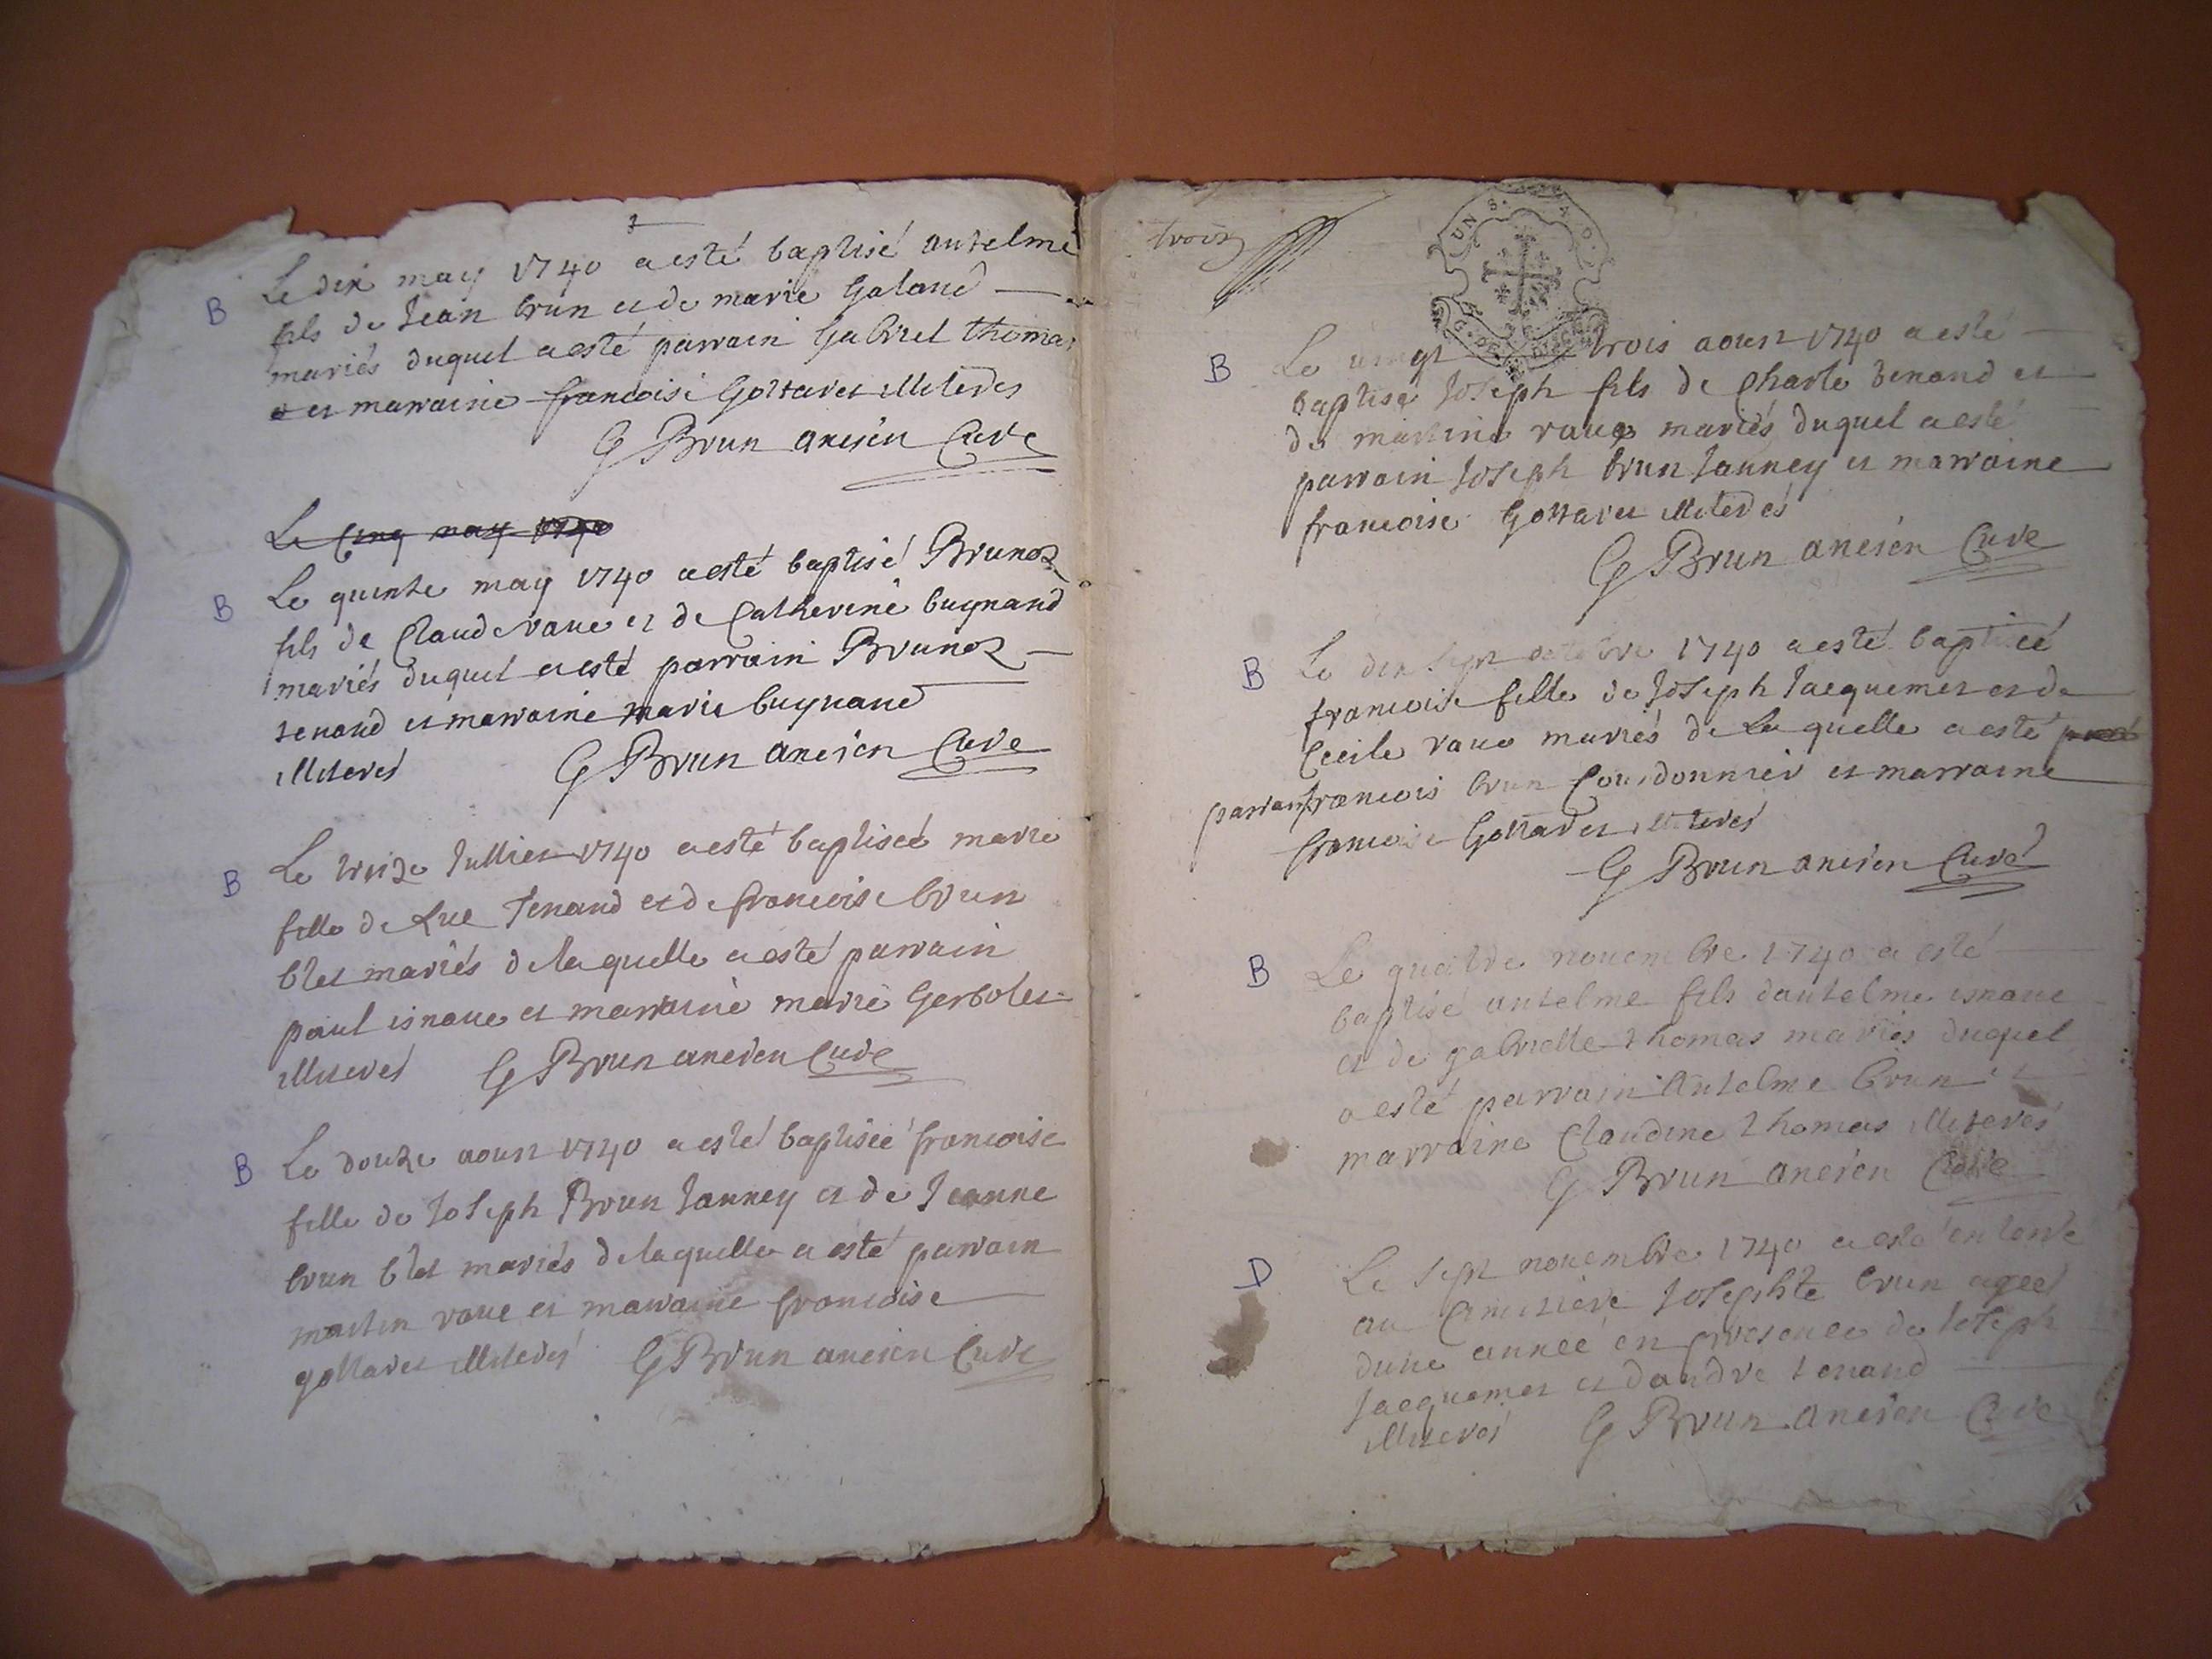 B Le dix may 1740 a esté baptisé antelme
fils de Jean brun et de marie Galand
mariés duquel a esté parrain Gabriel thomas
et marraine francoise Gottaret illiterés
G Brun ancien Curé
Le Cinq may 1740
B Le quinze may 1740 a esté baptisé Brunoz
fils de Claude raue et de Catherine bugnand
mariés duquel a esté parrain Brunoz
tenand et marraine marie bugnand
illiterés G Brun ancien Curé
B Le treize Julliet 1740 a esté baptiseé marie
fille de Luc Tenand et de francoise brun
blet mariés de laquelle a esté parrain
paul isnaue et marraine marie Gerbolet
illiterés G Brun ancien Curé
B Le douze aoust 1740 a esté baptiseé francoise
fille de Joseph Brun Janney et de Jeanne
brun blet mariés de laquelle a esté parrain
martin raue et marraine francoise
gottaret illiterés G Brun ancien Curé
trois
UN S.
B Le vingt trois aoust 1740 a esté
baptisé Joseph fils de Charle tenand et
de martine raue mariés duquel a esté
parrain Joseph brun Janney et marraine
francoise Gottaret illiterés
G Brun ancien Curé
B Le dix sept octobre 1740 a esté baptiseé
francoise fille de Joseph Jacquemet et de
Cecile raue mariés de La quelle a esté
parrain francois brun Courdonnier et marraine
francoise Gottaret illiterés
G Brun ancien Curé
B Le quatre nouembre 1740 a esté
baptisé antelme fils dantelme isnaue
et de gabrielle thomas mariés duquel
a esté parrain Antelme brun et
marraine Claudine thomas illiterés
G Brun ancien Curé
D Le sept nouembre 1740 a esté enterré
au Cimitiere Josephte brun ageé
dune anneé en presence de Joseph
Jacquemet et dandre tenand
illiterés G Brun ancien Curé